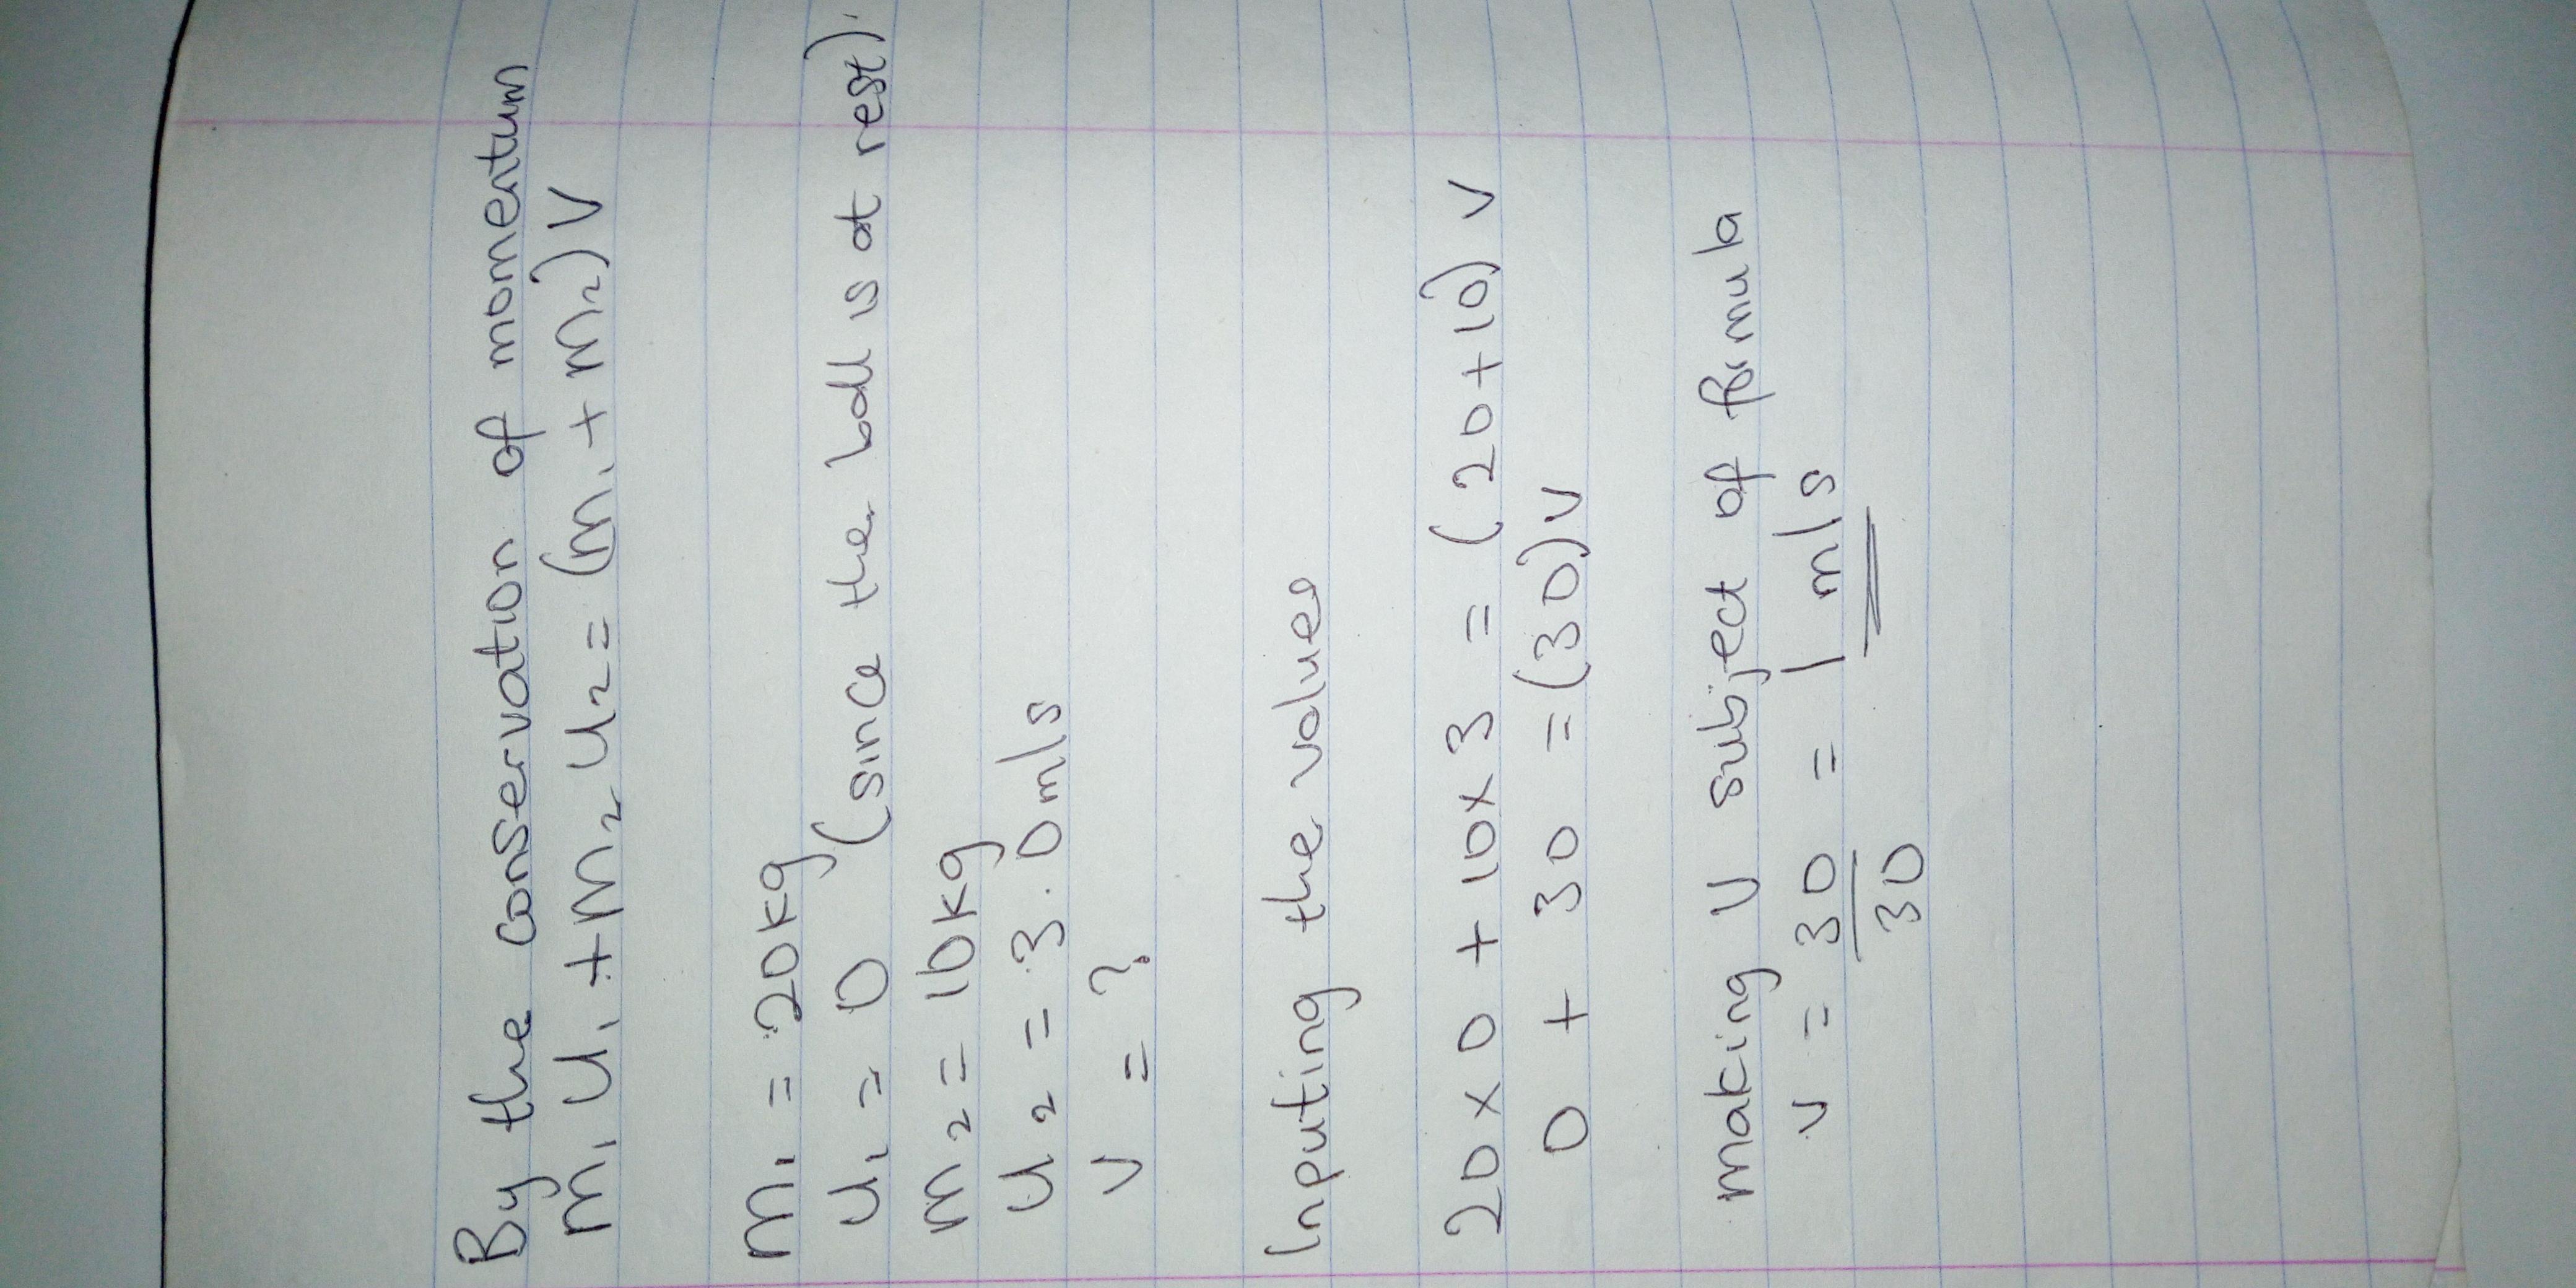 By the conservation of momentum
m₁ u₁ + m₂ u₂ = (m₁ + m₂) V
m₁ = 20kg
u₁ = 0 (since the ball is at rest).
m₂ = 10kg
u₂ = 3.0m/s
v = ?
Inputing the values
20 x 0 + 10 x 3 = (20 + 10) v
0 + 30 = (30) v
making v subject of formula
v = 30/30 = 1 m/s